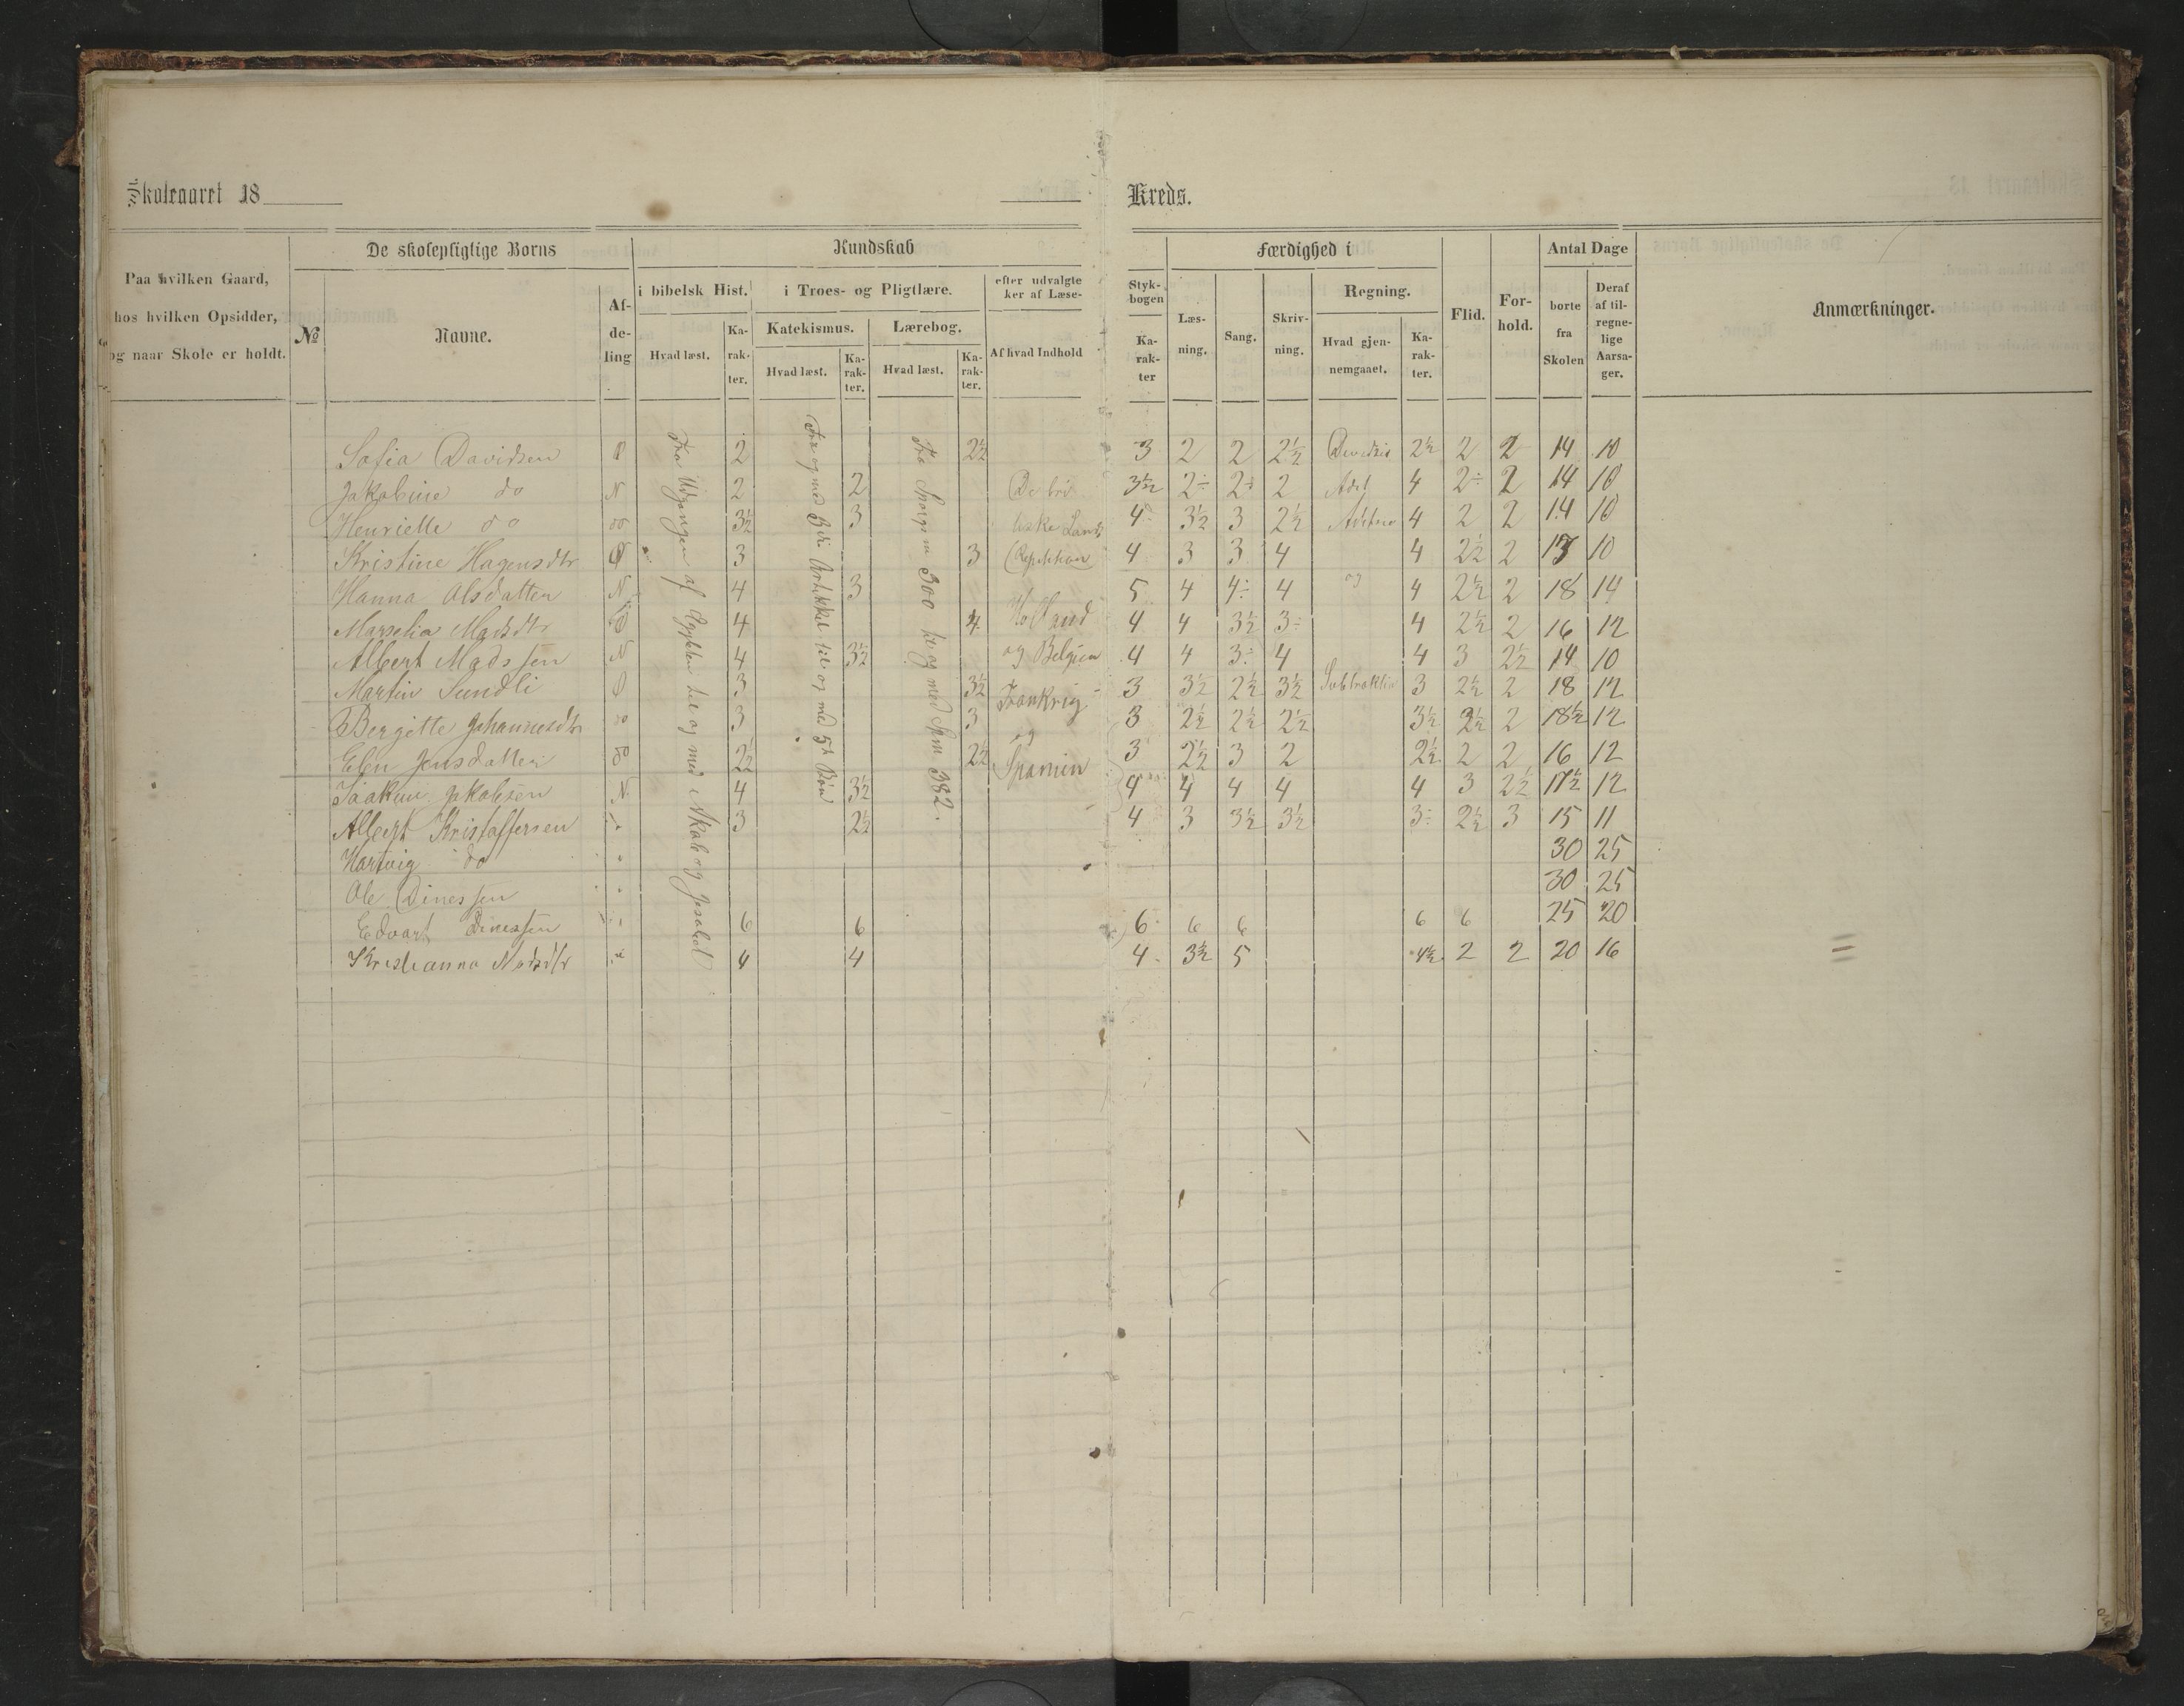 Skoleaaret 18
Kreds.
Paa hvilken Gaard, hos hvilken Opsidder, og naar Skole er holdt.
De skolepligtige Borns
№
Navne.
Af-de-ling
Kundskab
i bibelsk Hist.
Hvad læst.
Ka-rak-ter.
i Troes- og Pligtlære.
Katekismus.
Hvad læst.
Ka-rak-ter.
Lærebog.
Hvad læst.
Ka-rak-ter.
efter udvalgte
ker af Læse-
Af hvad Indhold
Styk-bogen
Ka-rak-ter
Færdighed i
Læs-ning.
Sang.
Skriv-ning.
Regning.
Hvad gjen-nemgaaet.
Ka-rak-ter.
Flid.
For-hold.
Antal Dage
borte fra Skolen
Deraf af til-regne-lige Aarsa-ger.
Anmærkninger.
Fra Udgangen af Ægypten til og med Akab og Jesabel
Fra og med 3die Artikkel til og med 5te Bøn
Fra Spørgsm 300 til og med Spm 382.
Sofia Davidsen Ø 2 2½ 3 2 2 2½ 2½ 2 2 14 10
Jakobine do N 2 2 3½ 2÷ 2÷ 2 Adet 4 2÷ 2 14 10
Henriette do do 3½ 3 4 3½ 3 2½ 4 2 2 14 10
Kristine Hagensdtr Ø 3 3 (Repetition) 4 3 3 4 4 2½ 2 13 10
Hanna Olsdatter N 4 3 5 4 4÷ 4 og 4 2½ 2 18 14
Marselia Madsdtr Ø 4 4 Holland 4 4 3½ 3÷ 4 2½ 2 16 12
Albert Madssen N 4 3½ og Belgien 4 4 3÷ 4 4 3 2½ 14 10
Martin Sundli Ø 3 3½ Frankrig 3 3½ 2½ 3½ Subtraktion 3 2½ 2 18 12
Bergitte Johannesdtr do 3 3 og 3 2½ 2½ 2½ 3½ 2½ 2 18½ 12
Elen Jensdatter do 2½ 2½ Spanien 3 2½ 3 2 2½ 2 2 16 12
Joakim Jakobsen N 4 3½ 4 4 4 4 4 3 2½ 17½ 12
Albert Kristoffersen 3 2½ 4 3 3½ 3½ 3÷ 2½ 3 15 11
Hartvig do 30 25
Ole Dinessen 30 25
Edvart Dinessen 6 6 6 6 6 6 6 25 20
Kristianna Madsdtr 4 4 4 3½ 5 4½ 2 2 20 16